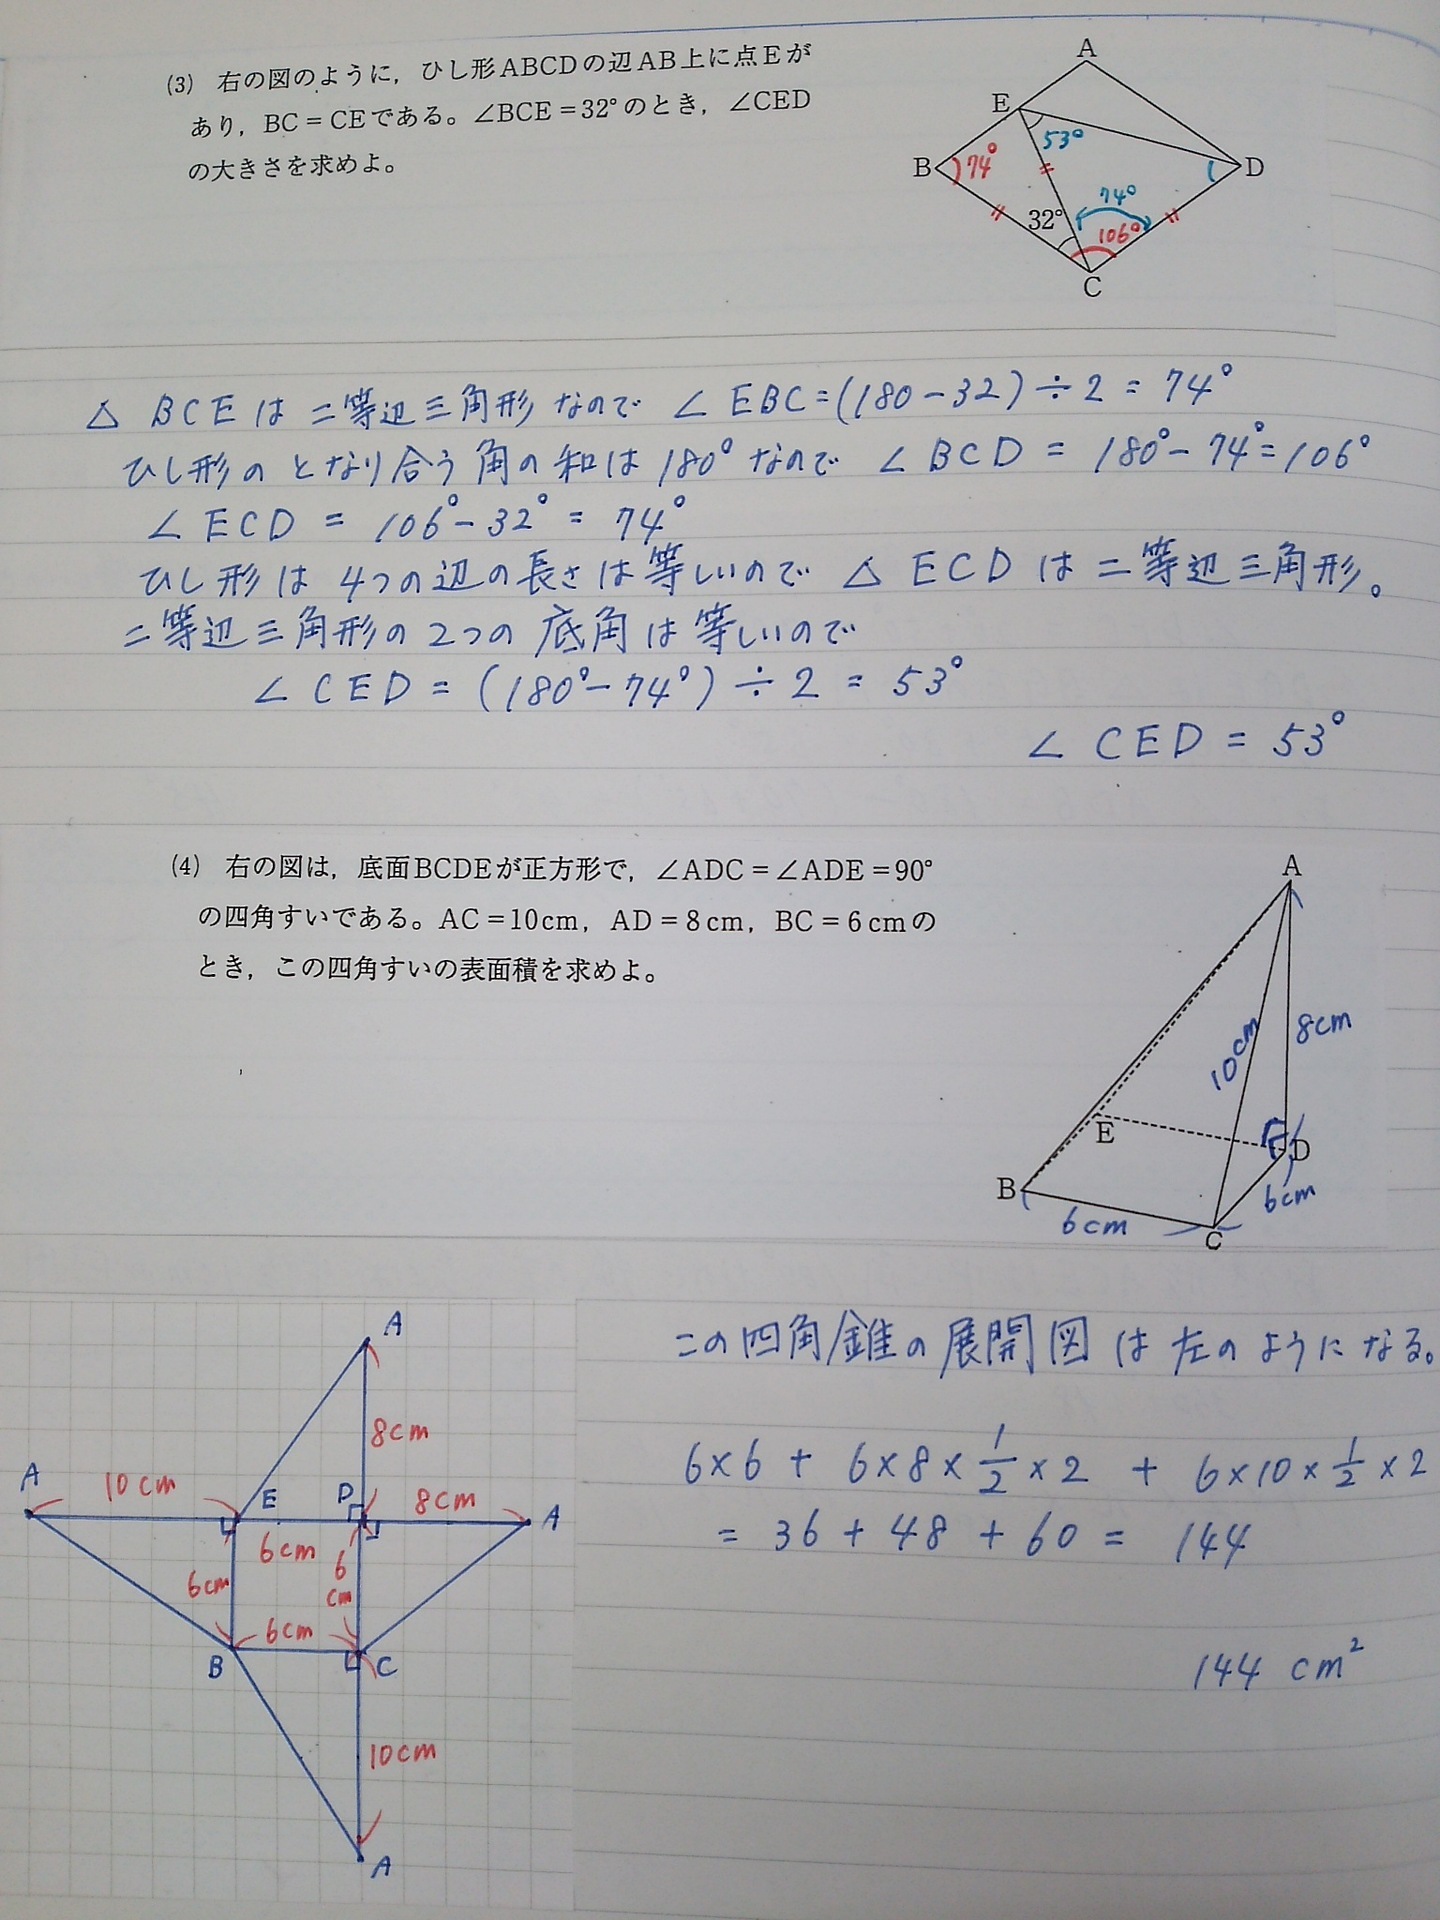 (3) 右の図のように，ひし形ABCDの辺AB上に点Eが
あり，BC＝CEである。∠BCE＝32°のとき，∠CED
の大きさを求めよ。
A
E
53°
B
74°
D
74°
32°
106°
C
△ BCE は 二等辺三角形 なので ∠EBC=(180-32)÷2=74°
ひし形の となり合う 角の 和は 180° なので ∠BCD = 180°-74°=106°
∠ECD = 106°-32° = 74°
ひし形は 4つの辺の長さは等しいので △ ECD は 二等辺三角形。
二等辺三角形の2つの 底角は 等しいので
∠CED = (180°-74°)÷2 = 53°
∠CED = 53°
(4) 右の図は，底面BCDEが正方形で，∠ADC＝∠ADE＝90°
の四角すいである。AC＝10cm，AD＝8cm，BC＝6cmの
とき，この四角すいの表面積を求めよ。
A
10cm
8cm
E
D
B
6cm
6cm
C
この四角錐の 展開図 は 左の ように なる。
6×6 + 6×8×1/2×2 + 6×10×1/2×2
= 36+48+60 = 144
144 cm²
A
8cm
A
10cm
E
D
8cm
A
6cm
6
cm
6cm
6cm
B
C
10cm
A